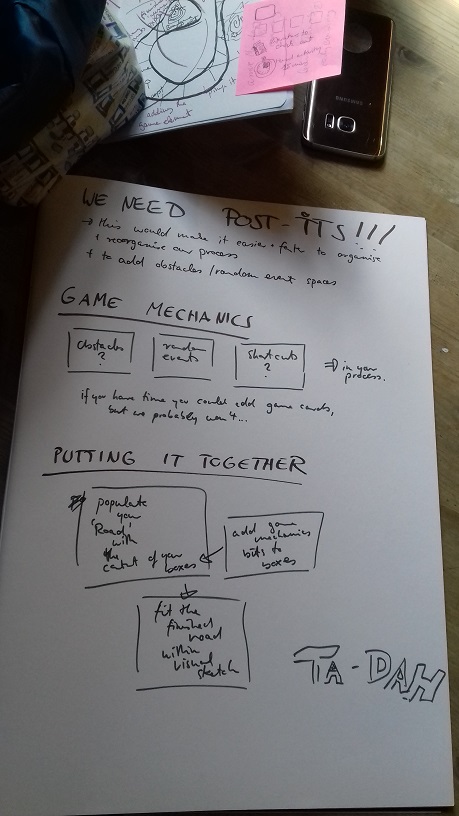 adding the
game element
SAMSUNG
WE NEED POST-ITS!!!
→ this would make it easier + faster to organise
+ reorganise our process
+ to add obstacles / random event spaces
GAME MECHANICS
obstacles
?
random
events
shortcuts
?
⇒ in your
process.
if you have time you could add game cards,
but we probably won't...
PUTTING IT TOGETHER
populate
your
'Road'
with
the
content of your
boxes
add game
mechanics
bits to
boxes
fit the
finished
road
within
visual
sketch
TA-DAH